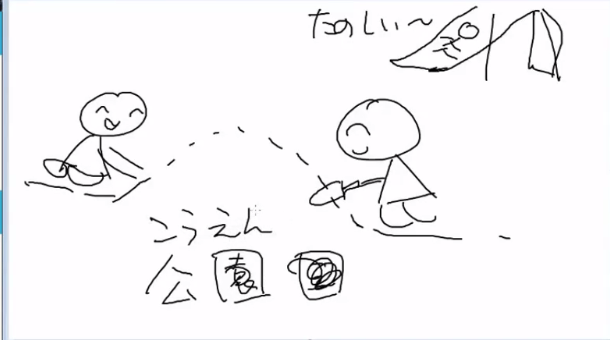 たのしい〜
こうえん
公園